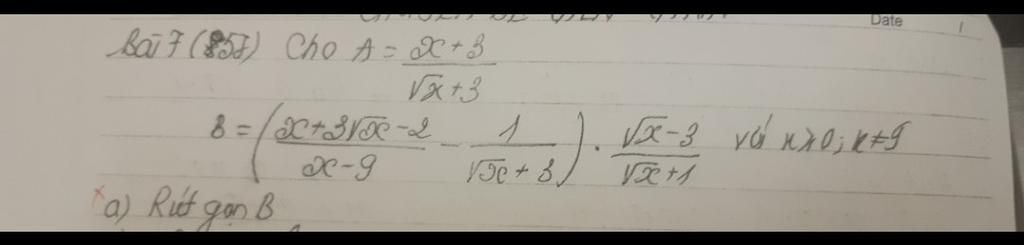 Date
Bài 7 (857) Cho A = x+3 / √x+3
B = ( x+3√x-2 / x-9 - 1 / √x+3 ) . √x-3 / √x+1 với x≥0; x≠9
a) Rút gọn B